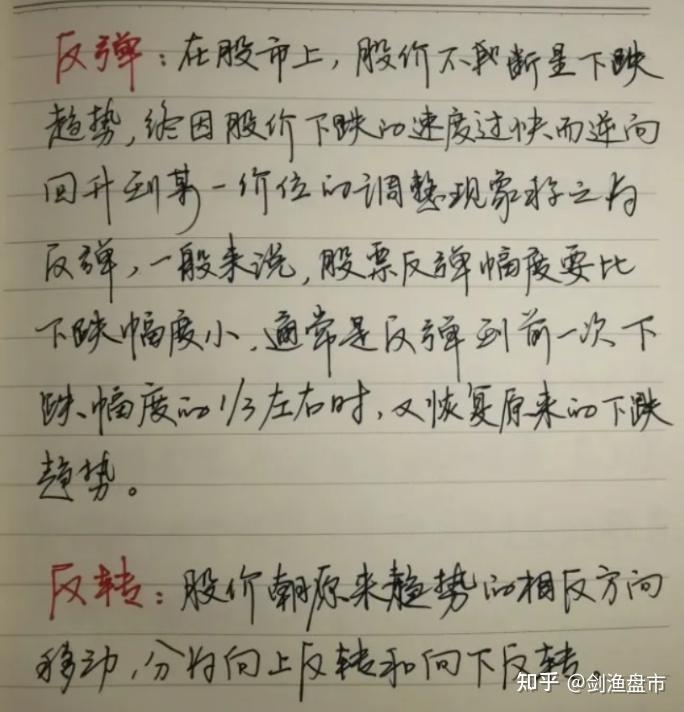 反弹：在股市上，股价不断呈下跌
趋势，终因股价下跌的速度过快而逆向
回升到某一价位的调整现象称之为
反弹，一般来说，股票反弹幅度要比
下跌幅度小，通常是反弹到前一次下
跌幅度的1/3左右时，又恢复原来的下跌
趋势。
反转：股价朝原来趋势的相反方向
移动，分为向上反转和向下反转。
知乎 @剑渔盘市